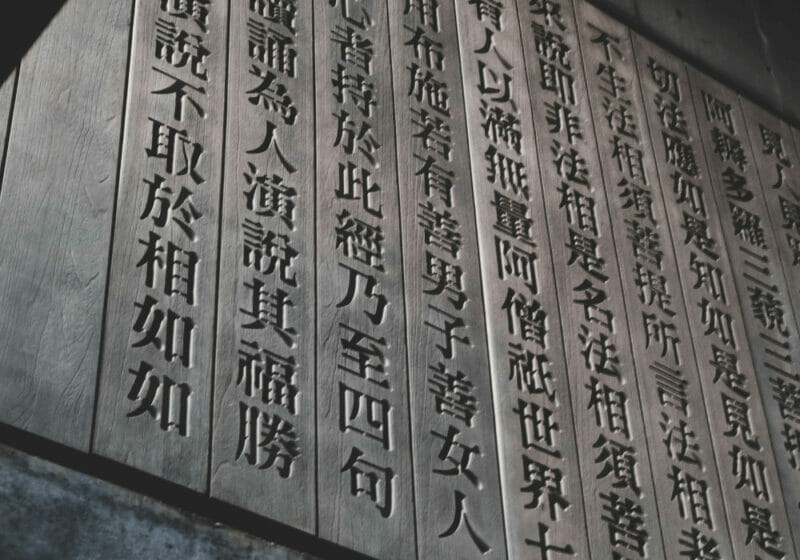 見人見
阿耨多羅三藐三菩提
切法應如是知如是見如是
不生法相須菩提所言法相者
來說即非法相是名法相須菩
有人以滿無量阿僧祇世界七
用布施若有善男子善女人
心者持於此經乃至四句
讀誦為人演說其福勝
演說不取於相如如